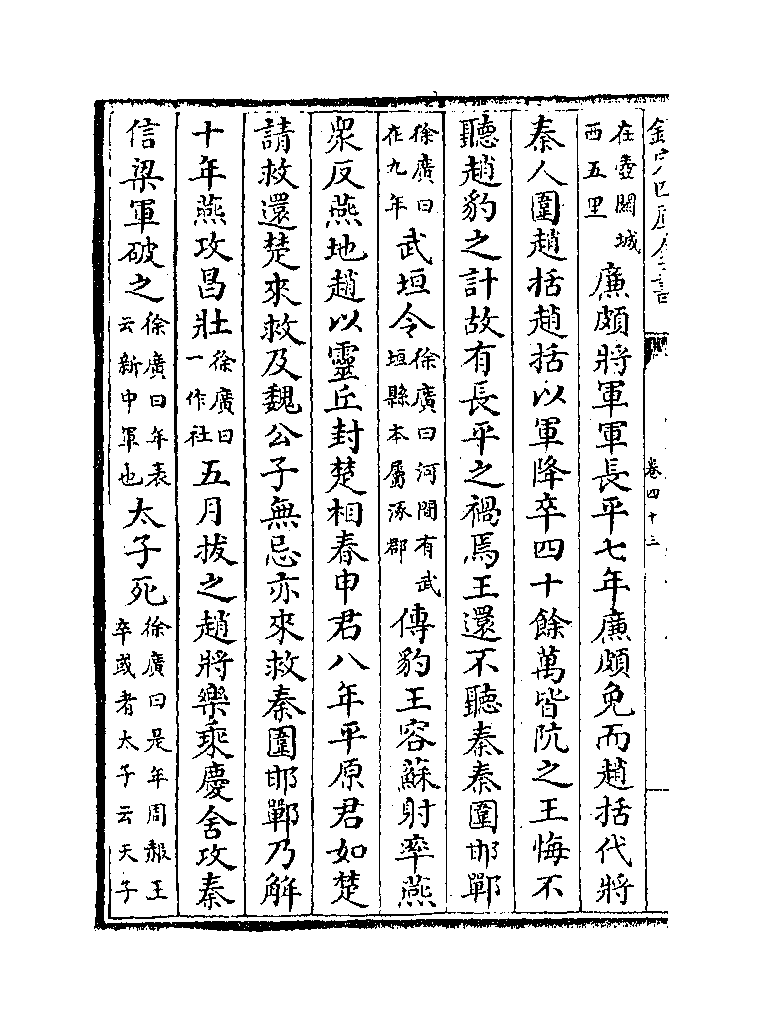 欽定四庫全書
卷四十三
在壺關城
西五里
廉頗將軍軍長平七年廉頗免而趙括代將
秦人圍趙括趙括以軍降卒四十餘萬皆阬之王悔不
聽趙豹之計故有長平之禍焉王還不聽秦秦圍邯鄲
徐廣曰
在九年
武垣令
徐廣曰河間有武
垣縣本屬涿郡
傅豹王容蘇射率燕
衆反燕地趙以靈丘封楚相春申君八年平原君如楚
請救還楚來救及魏公子無忌亦來救秦圍邯鄲乃解
十年燕攻昌壯
徐廣曰
一作社
五月拔之趙將樂乘慶舍攻秦
信梁軍破之
徐廣曰年表
云新中軍也
太子死
徐廣曰是年周赧王
卒或者太子云天子